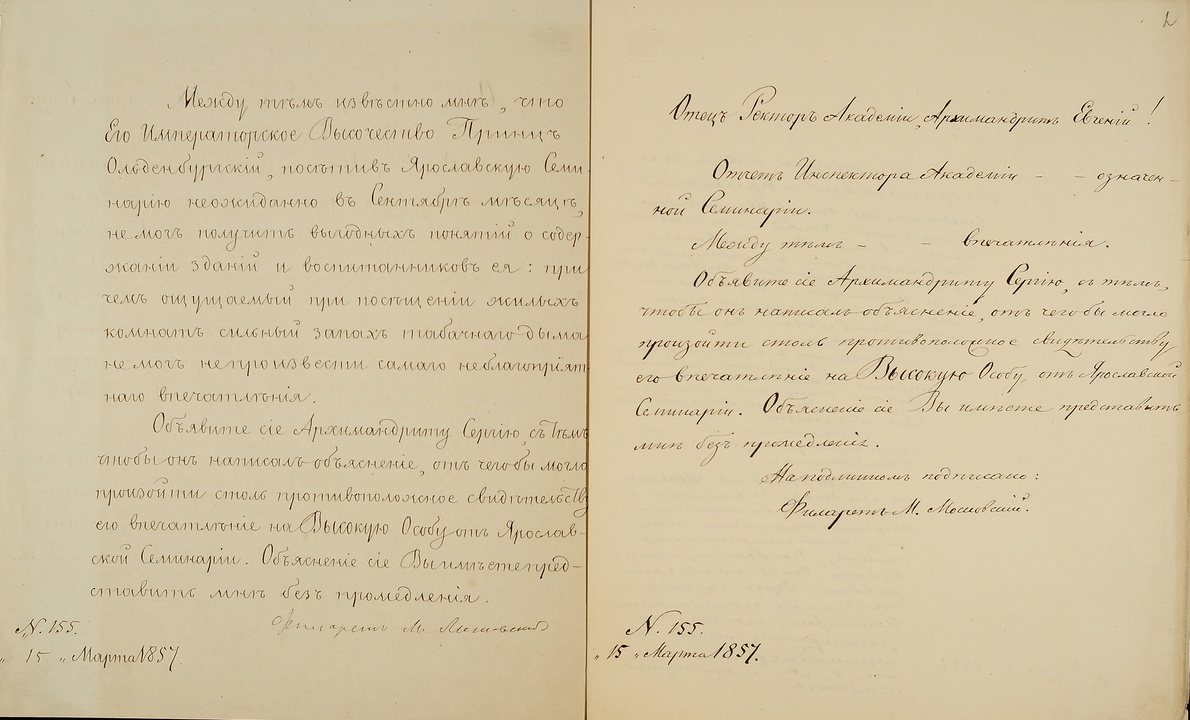 Между тѣмъ извѣстно мнѣ, что
Его Императорское Высочество Принцъ
Ольденбургскій, посѣтивъ Ярославскую Семи-
нарію неожиданно въ Сентябрѣ мѣсяцѣ,
не могъ получить выгодныхъ понятій о содер-
жаніи зданій и воспитанниковъ ея: при
чемъ ощущаемый при посѣщеніи жилыхъ
комнатъ сильный запахъ табачнаго дыма
не могъ не произвести самаго неблагопріят-
наго впечатлѣнія.
Объявите сіе Архимандриту Сергію, съ тѣмъ
чтобы онъ написалъ объясненіе, отъ чего бы могло
произойти столь противоположное свидѣтельству
его впечатлѣніе на Высокую Особу отъ Ярослав-
ской Семинаріи. Объясненіе сіе Вы имѣете пред-
ставить мнѣ безъ промедленія.
Филаретъ М. Московскій
N. 155.
„ 15 „ Марта 1857.
2
Отецъ Ректоръ Академіи, Архимандритъ Евгеній!
Отчетъ Инспектора Академіи - - означен-
ной Семинаріи.
Между тѣмъ - - впечатлѣнія.
Объявите сіе Архимандриту Сергію, съ тѣмъ,
чтобы онъ написалъ объясненіе, отъ чего бы могло
произойти столь противоположное свидѣтельству
его впечатлѣніе на Высокую Особу отъ Ярославской
Семинаріи. Объясненіе сіе Вы имѣете представить
мнѣ безъ промедленія.
На подлинномъ подписано:
Филаретъ М. Московскій.
N. 155.
„ 15 „ Марта 1857.